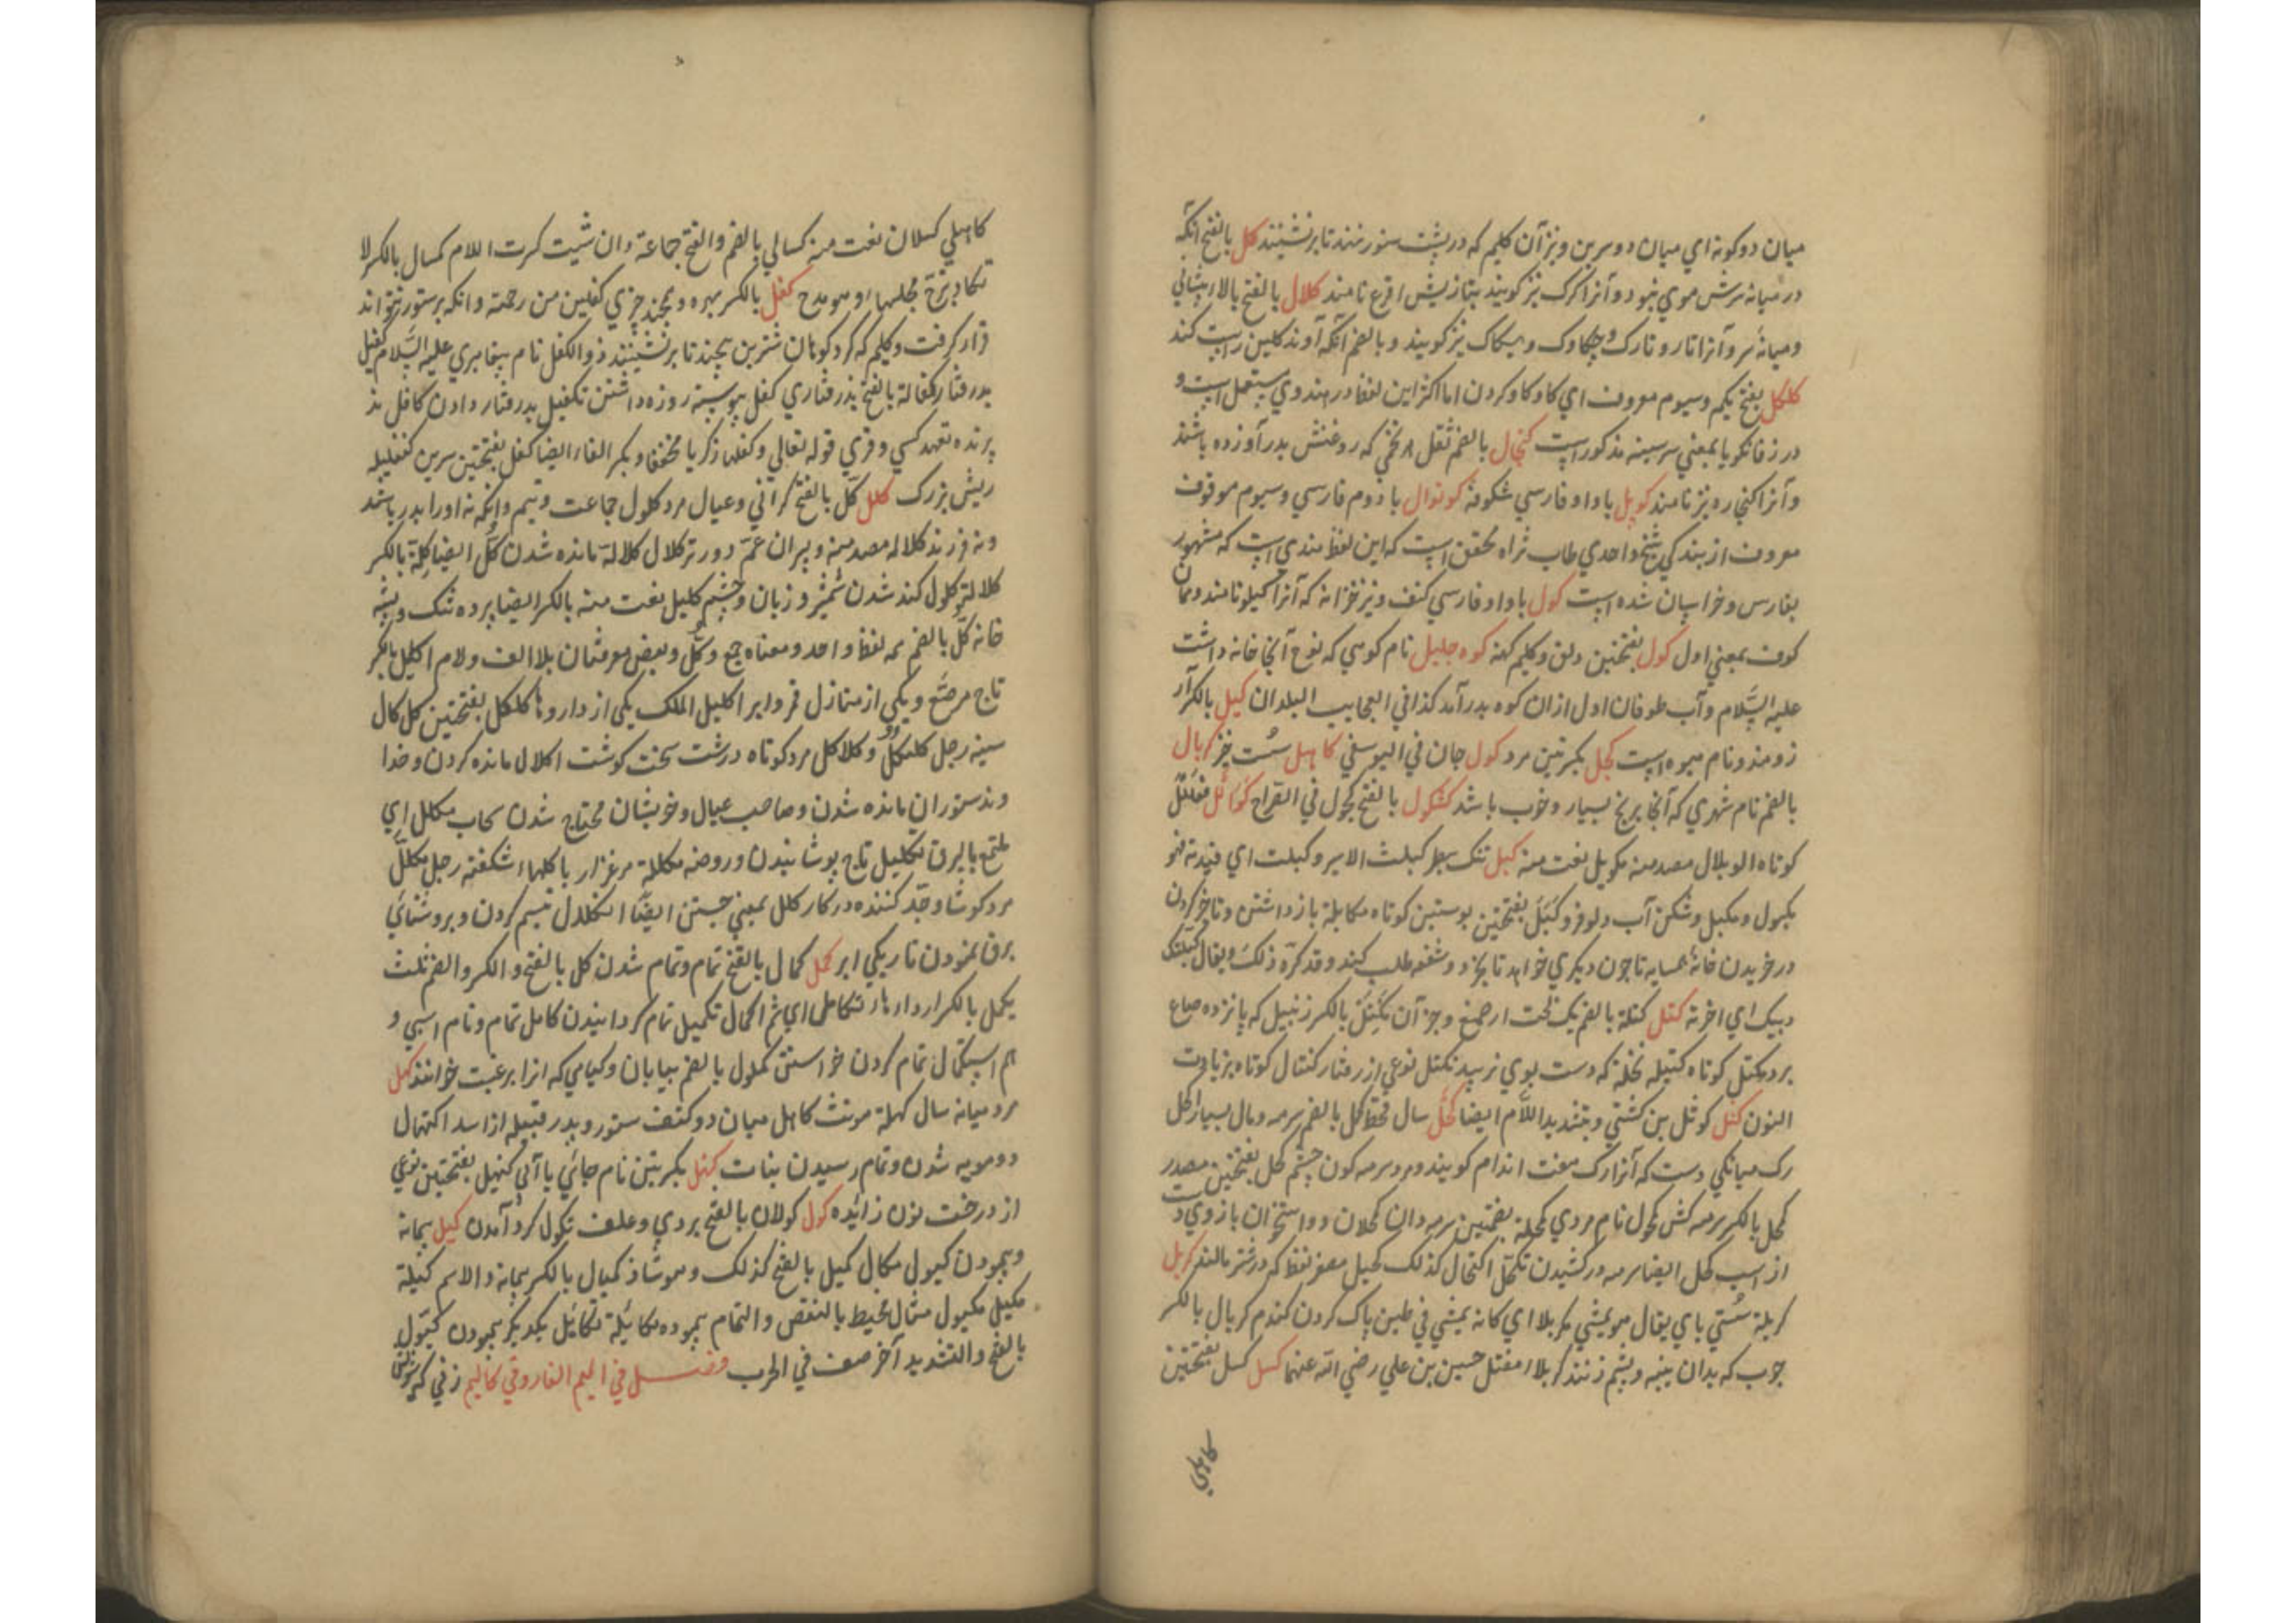 میان دوکونه ای میان دو سرین و نیز آن کلیم که در پشت ستور نهند تا بر نشینند کل بالفتح آنکه
در میانه سرش موی نبود و آنرا کرک نیز کویند بتازیش اقرع نامند کلال بالفتح بالاء پیشانی
و میانه سر و آنرا تار و تارک و چکاوک و هیکاک نیز کویند و بالضم آنکه آوند کلین راست کند
کلکل بفتح یکم و سیوم معروف ای کاوکاو کردن اما اکثر این لفظ در هندوی مستعمل است و
در زفانکویا بمعنی سر سینه مذکور است کنجال بالضم ثقل هر تخمی که روغنش بدر آورده باشند
و آنرا کنجاره نیز نامند کوپل با واو فارسی شکوفه کوتوال با دوم فارسی و سیوم موقوف
معروف از بندکی شیخ واحدی طاب ثراه محقق است که این لفظ هندی است که مشهور
بفارس و خراسان شده است کول با واو فارسی کتف و نیز خزانه که آنرا کیلو نامند و بمان
کوف بمعنی اول کول بفتحتین دلق و کلیم کهنه کوه جلیل نام کوهی که نوح آنجا خانه داشت
علیه السلام و آب طوفان اول ازان کوه بدر آمد کذا فی العجایب البلدان کیل بالکسر آر
زومند و نام میوه است کجل بکسرتین مرد کول جان فی الیوسفی کاهل سست خیز کربال
بالضم نام شهری که آنجا برنج بسیار و خوب باشد کشکول بالفتح کچول فی القراح کوائل فعائل
کوتاه الوبلال مصدر منه مکویل نعت منه کبل تنک سطبر کبلت الاسیر و کبلت ای قیدته فهو
مکبول و مکبل و شکن آب دلو فرو کبل بفتحتین بوستین کوتاه مکابلة بازداشتن و تاخیر کردن
در خریدن خانۀ همسایه تا چون دیکری خواهد تا بخرد و شفعه طلب کند و قد کره ذلک و یقال کبلتک
دینک ای اخرته کتل کتلة بالضم یک لخت از صمغ و جز آن مکتل بالکسر زنبیل که پانزده صاع
برد مکتل کوتاه کتیله نخلة که دست بوی نرسد تکتل نوعی از رفتار کنتال کوتاه بزیادت
النون کثل کوثل بن کشتی و بتشدید اللام ایضا کحل سال قحط کحل بالضم سرمه و مال بسیار اکحل
رک میانکی دست که آنرا رک هفت اندام کویند و مرد سرمه کون چشم کحل بفتحتین مصدر
کحل بالکسر سرمه کش کحول نام مردی مکحلة بضمتین سرمه دان مکحلان دو استخوان بازوی دست
از اسب کحل ایضا سرمه درکشیدن تکحل اکتحال کذلک کحیل مصغر نفط که در شتر مالند کربل
کربلة سستی پای یقال هو یمشی مکربلا ای کانه یمشی فی طین پاک کردن کندم کربال بالکسر
چوب که بدان پنبه و پشم زنند کربلاء مقتل حسین بن علی رضی الله عنهما کسل کسل بفتحتین
کاهلی
کاهلی کسلان نعت منه کسالی بالضم والفتح جماعة وان شئت کسرت اللام کمسال بالکسر لا
تکاد تبرح مجلسها و هو مدح کفل بالکسر بهره و دوچند چیزی کفلین من رحمة و انکه بر ستور نتواند
قرار کرفت و کلیم که کرد کوهان شتر بن پیچند تا بر نشینند ذوالکفل نام پیغامبری علیه السلام کفیل
بدرفتار کفالة بالفتح بذرفتاری کفل پیوسته روزه داشتن تکفیل بدرفتار دادن کافل پذ
یرنده تعهد کسی و قری قوله تعالی و کفلها زکریا مخففا و بکسر الفاء ایضا کفل بفتحتین سرین کنفلیله
ریش بزرک کلل کل بالفتح کرانی و عیال مرد کلول جماعت و یتیم و انکه نه اورا پدر باشد
و نه فرزند کلاله مصدر منه و پسران عم دورتر کلال کلالة مانده شدن کل ایضا کلة بالکسر
کلالة کلول کند شدن شمشیر و زبان و چشم کلیل نعت منه بالکسر ایضا پرده تنک و پشه
خانه کل بالضم همه لفظ واحد و معناه جمع و کل و بعض معرفتان بلا الف و لام اکلیل بالکسر
تاج مرصع و یکی از منازل قمر و ابر اکلیل الملک یکی از داروها کلکل بفتحتین کلکال
سینه رجل کلکل و کلاکل مرد کوتاه درشت سخت کوشت اکلال مانده کردن و خدا
وند ستوران مانده شدن و صاحب عیال و خویشان محتاج شدن سحاب مکلل ای
ملتمع بالبرق تکلیل تاج پوشانیدن و روضه مکللة مرغزار با کلهاء شکفته رجل مکلل
مرد کوشا و جد کننده در کار کلل بمعنی جستن ایضا انکلال تبسم کردن و بروشنائی
برق نمودن تاریکی ابر کمل کمال بالفتح تمام و تمام شدن کمل بالفتح و الکسر و الضم ثلث
یکمل بالکسر تکامل ای تم اکمال تکمیل تمام کردانیدن کامل تمام و نام اسبی و
هم استکمال تمام کردن خواستن کملول بالضم بیابان و کیاهی که انرا برغبت خوانند کهل
مرد میانه سال کهلة مونث کاهل میان دو کتف ستور و پدر قبیله از اسد اکتهال
دو مویه شدن و تمام رسیدن بنات کنهل بکسرتین نام جائی با آبی کنهبل بفتحتین نوعی
از درخت نون زائده کول کولان بالفتح بردی و علف تکول کرد آمدن کیل پیمانه
و پیمودن کیول مکال کمیل بالفتح کذلک و هو شاذ کمیال بالکسر پیمانه و الاسم کیلة
مکیل مکیول مثال مخیط بالنقص و التمام پیموده مکایلة تکایل یکدیکر پیمودن کیول
بالفتح و التشدید آخر صف فی الحرب فصل فی المیم الفاروقی کالیم زنی که شوهرش